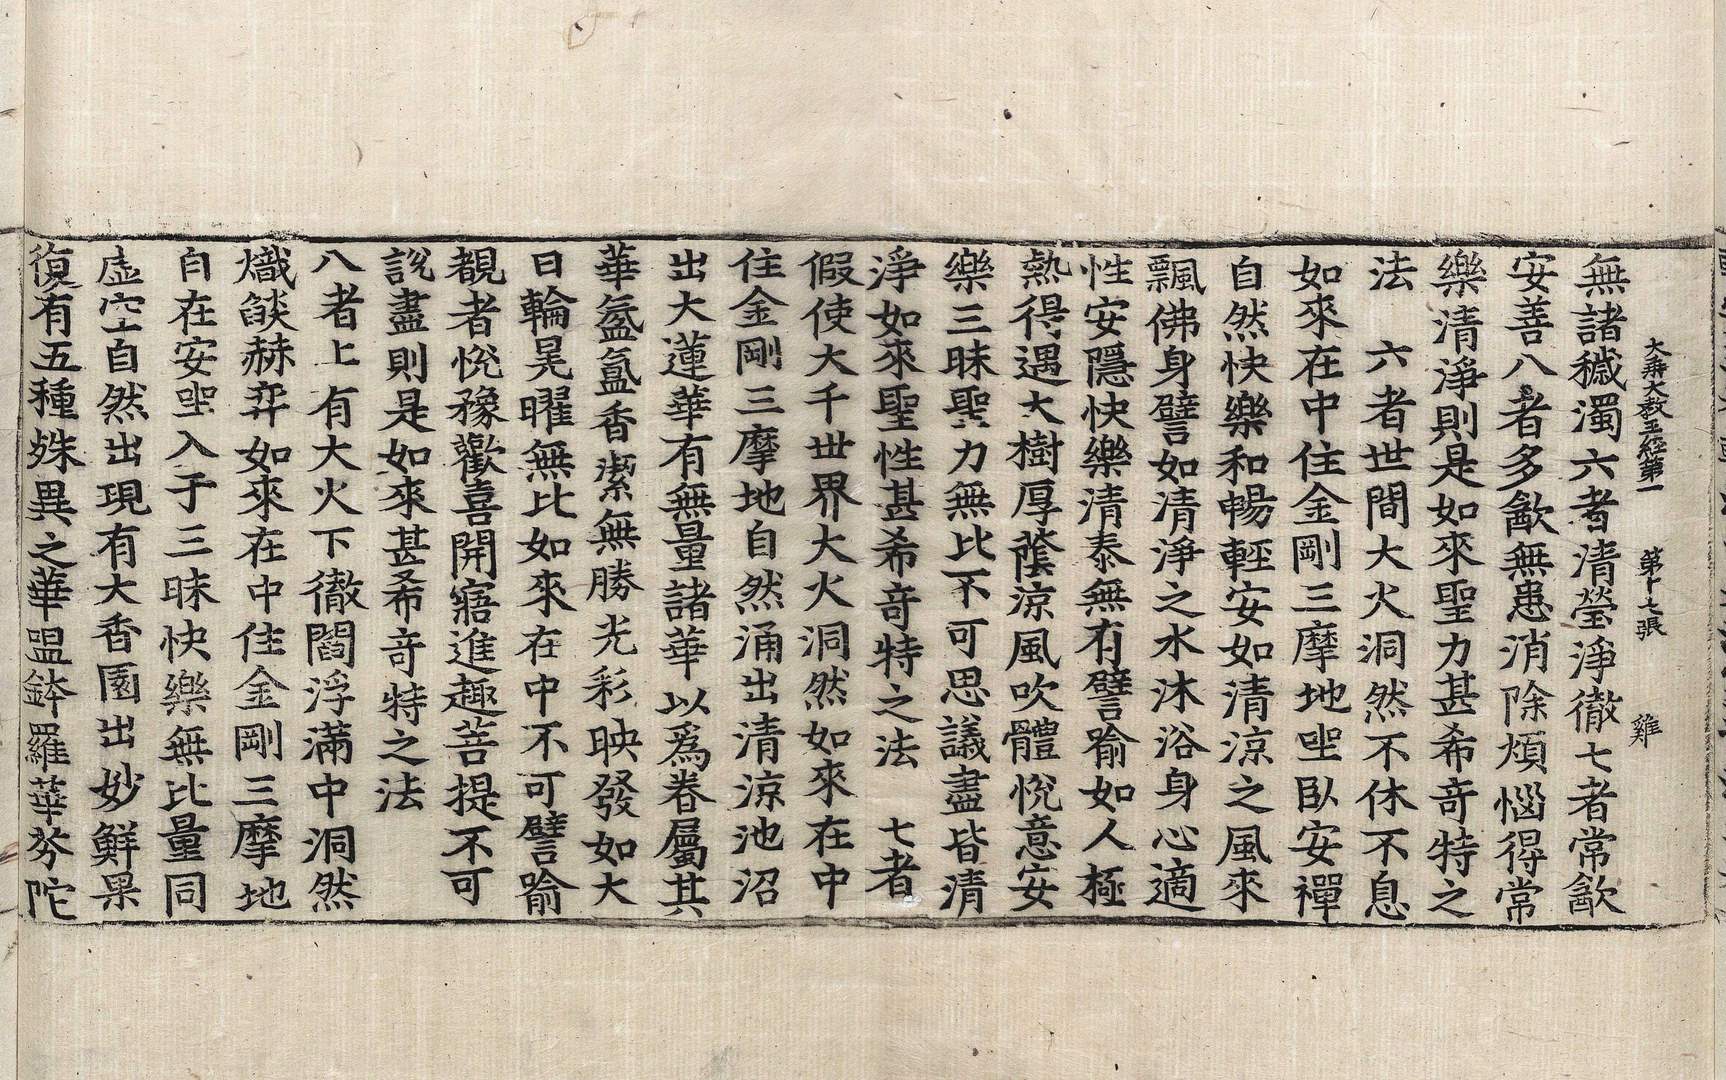 大乘大教王經第一　第十七張　雞
無諸穢濁六者清瑩淨徹七者常歃
安善八者多歃無患消除煩惱得常
樂清淨則是如來聖力甚希奇特之
法　六者世間大火洞然不休不息
如來在中住金剛三摩地坐臥安禪
自然快樂和暢輕安如清涼之風來
飄佛身譬如清淨之水沐浴身心適
性安隱快樂清泰無有譬喻如人極
熱得遇大樹厚蔭涼風吹體悅意安
樂三昧聖力無比不可思議盡皆清
淨如來聖性甚希奇特之法　七者
假使大千世界大火洞然如來在中
住金剛三摩地自然涌出清涼池沼
出大蓮華有無量諸華以爲眷屬其
華氛氳香潔無勝光彩映發如大
日輪晃曜無比如來在中不可譬喻
覩者悅豫歡喜開寤進趣菩提不可
說盡則是如來甚希奇特之法
八者上有大火下徹閻浮滿中洞然
熾燄赫弈如來在中住金剛三摩地
自在安坐入于三昧快樂無比量同
虛空自然出現有大香園出妙鮮果
復有五種姝異之華嗢鉢羅華芬陀